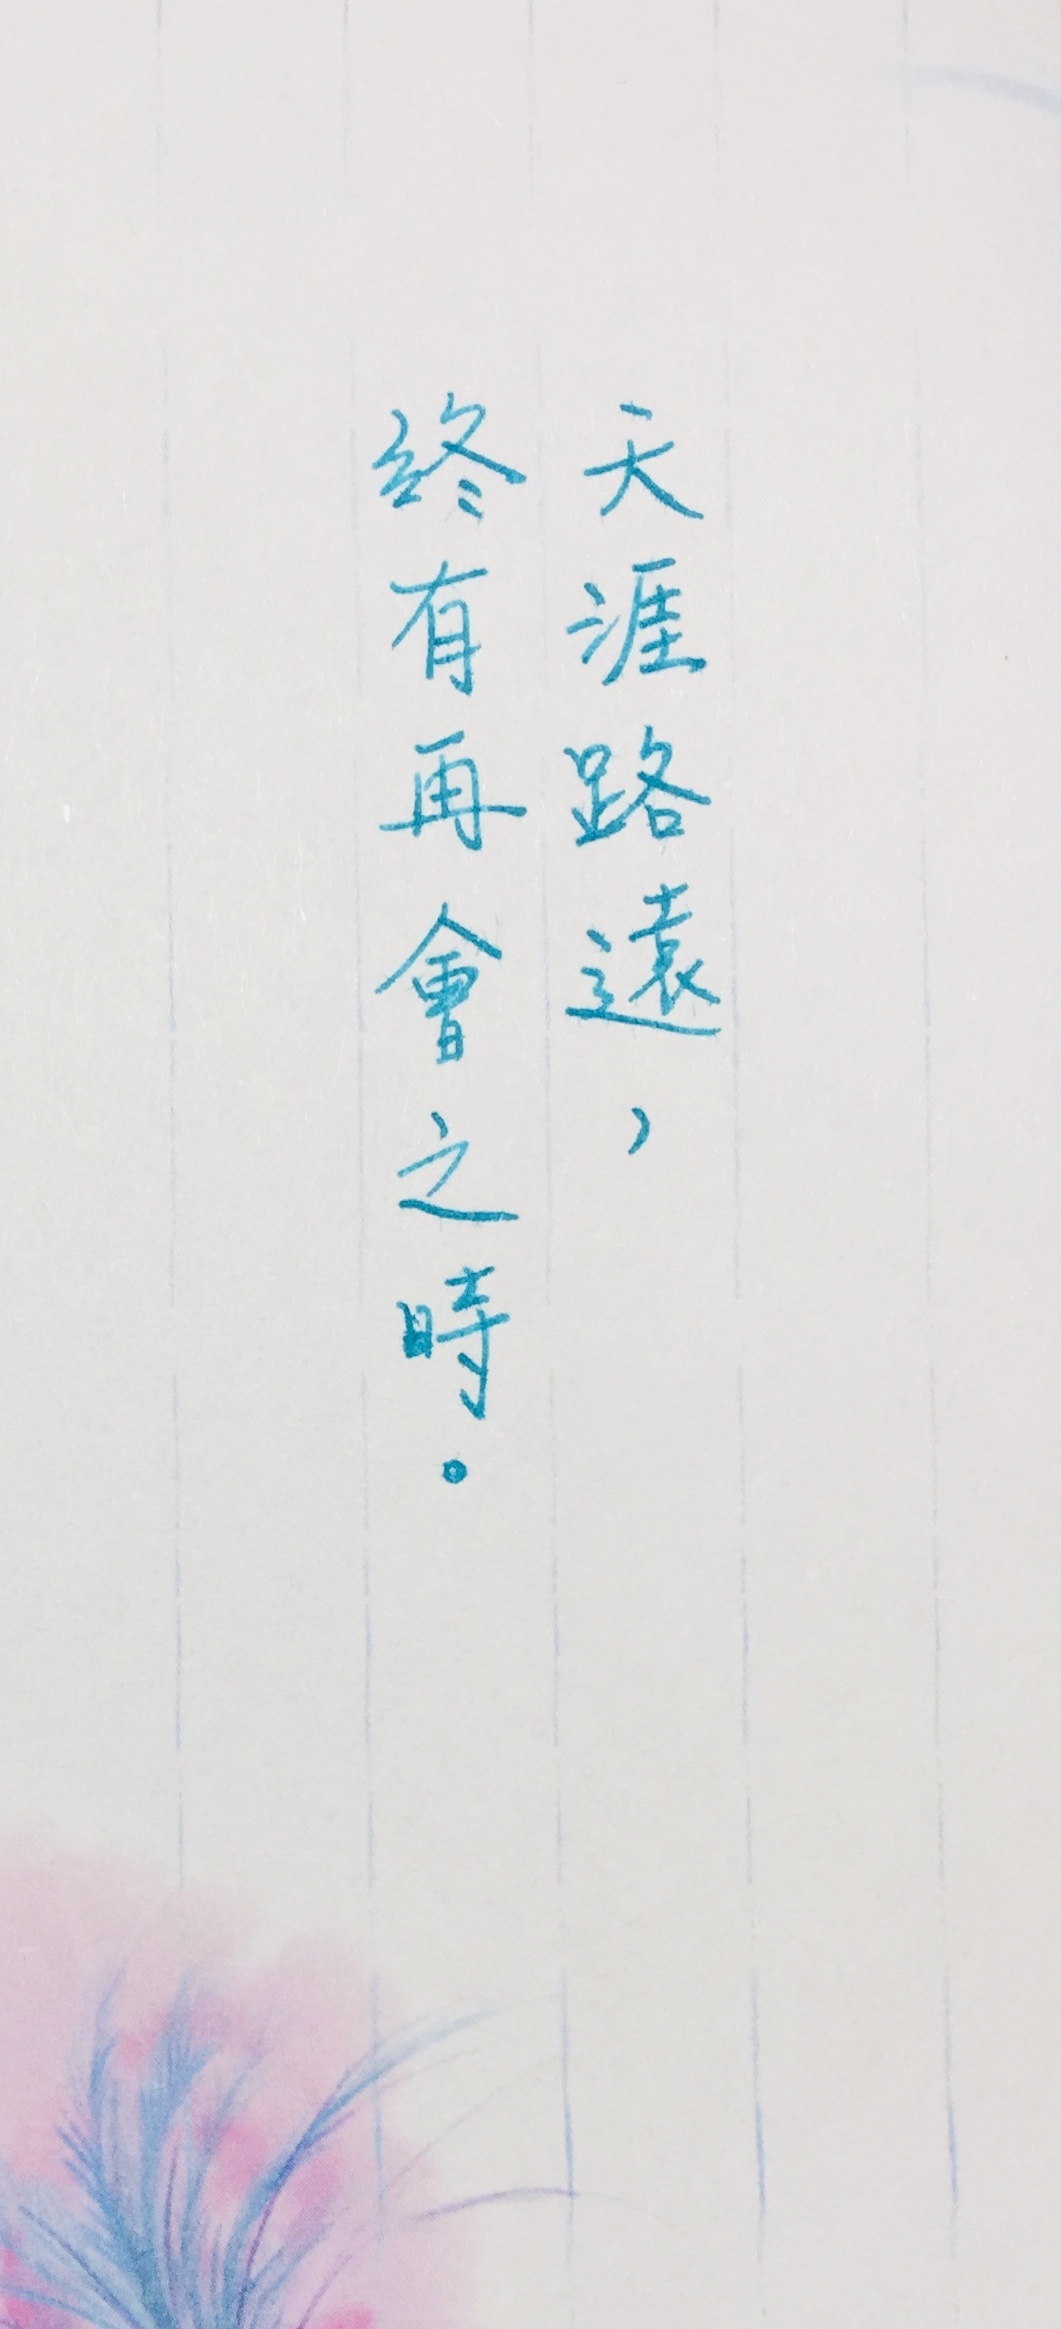 天涯路遠，
終有再會之時。